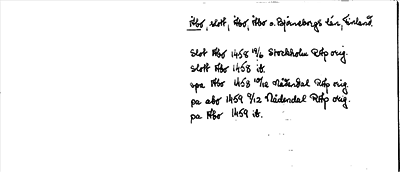 Åbo, slott, Åbo, Åbo o. Björneborgs län, Finland.
Slot Abo 1458 19/6 Stockholm RAp orig.
Slott Åbo 1458 ib.
upa Abo 1458 10/12 Nådendal RAp orig.
pa abo 1459 9/12 Nådendal RAp orig.
pa Abo 1459 ib.